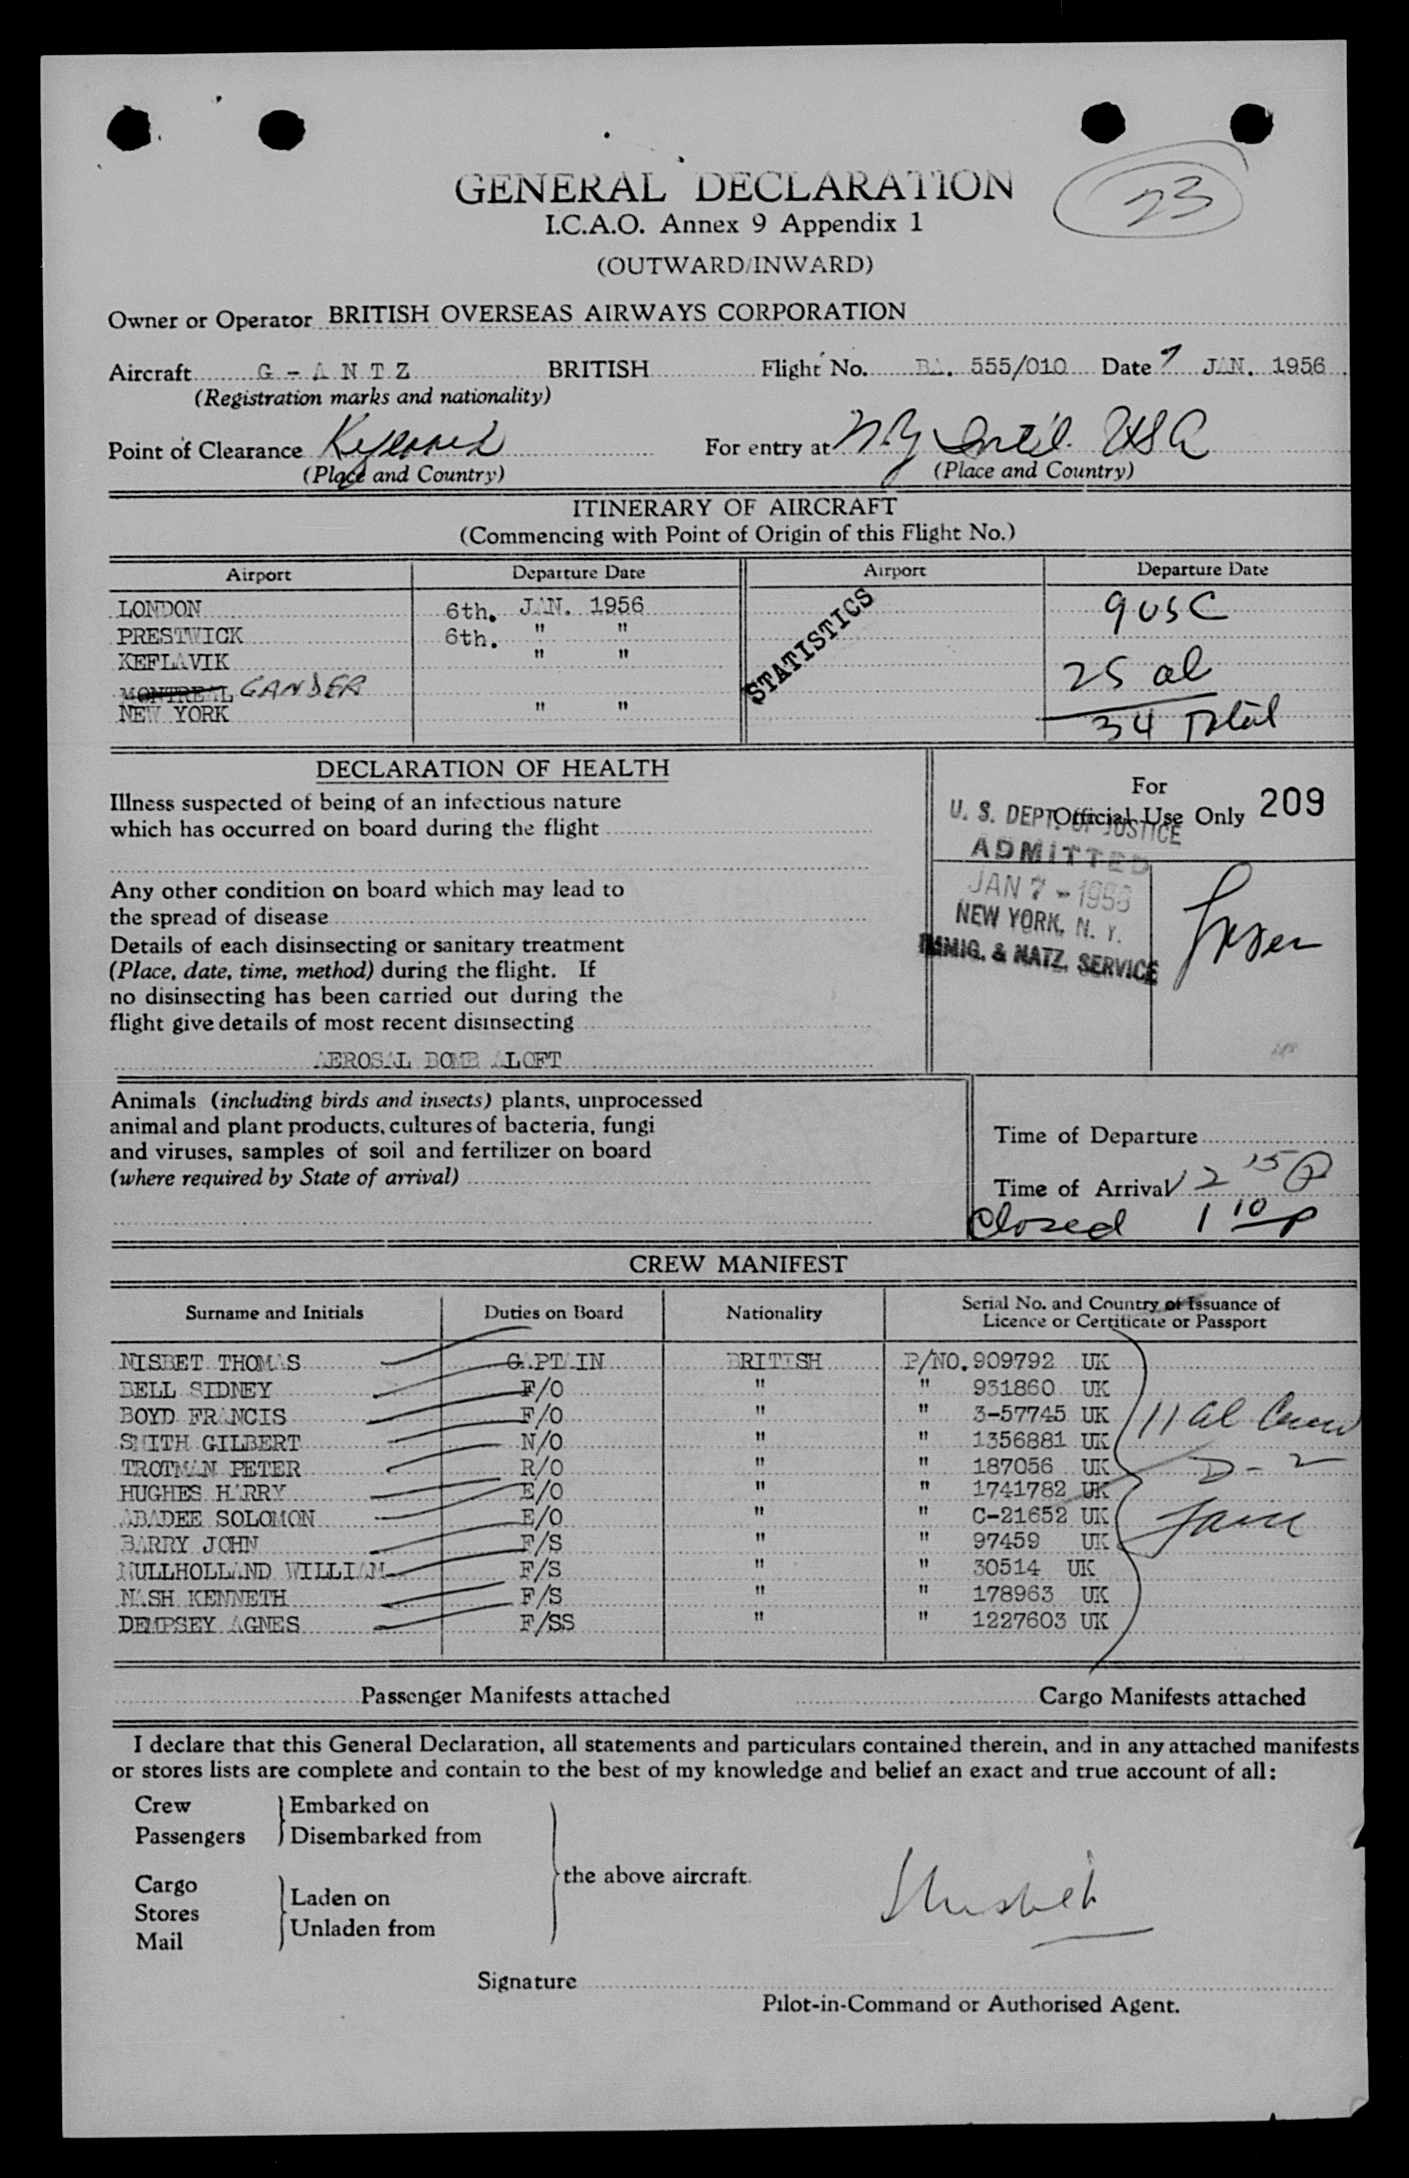 23
GENERAL DECLARATION
I.C.A.O. Annex 9 Appendix 1
(OUTWARD/INWARD)
Owner or Operator BRITISH OVERSEAS AIRWAYS CORPORATION
Aircraft G - A N T Z BRITISH Flight No. BA. 555/010 Date 7 JAN. 1956
(Registration marks and nationality)
Point of Clearance For entry at N.Y Int'l. USA
(Place and Country) (Place and Country)
ITINERARY OF AIRCRAFT
(Commencing with Point of Origin of this Flight No.)
Airport Departure Date Airport Departure Date
LONDON 6th. JAN. 1956 9 USC
PRESTWICK 6th. " "
KEFLAVIK " " 25 al
MONTREAL GANDER
NEW YORK " " 34 Total
STATISTICS
DECLARATION OF HEALTH
Illness suspected of being of an infectious nature
which has occurred on board during the flight
Any other condition on board which may lead to
the spread of disease
Details of each disinsecting or sanitary treatment
(Place, date, time, method) during the flight. If
no disinsecting has been carried out during the
flight give details of most recent disinsecting
AEROSAL BOMB ALOFT
For
Official Use Only 209
U. S. DEPT. OF JUSTICE
ADMITTED
JAN 7 - 1956
NEW YORK, N. Y.
IMMIG. & NATZ. SERVICE
Animals (including birds and insects) plants, unprocessed
animal and plant products, cultures of bacteria, fungi
and viruses, samples of soil and fertilizer on board
(where required by State of arrival)
Time of Departure
Time of Arrival 12 15 P
Closed 1 10 P
CREW MANIFEST
Surname and Initials Duties on Board Nationality Serial No. and Country of Issuance of
Licence or Certificate or Passport
NISBET THOMAS CAPTAIN BRITISH P/NO. 909792 UK
BELL SIDNEY F/O " " 931860 UK
BOYD FRANCIS F/O " " 3-57745 UK
SMITH GILBERT N/O " " 1356881 UK
TROTMAN PETER R/O " " 187056 UK
HUGHES HARRY E/O " " 1741782 UK
ABADEE SOLOMON E/O " " C-21652 UK
BARRY JOHN F/S " " 97459 UK
MULLHOLLAND WILLIAM F/S " " 30514 UK
NASH KENNETH F/S " " 178963 UK
DEMPSEY AGNES F/SS " " 1227603 UK
11 al Crew
D - 2
Passenger Manifests attached Cargo Manifests attached
I declare that this General Declaration, all statements and particulars contained therein, and in any attached manifests
or stores lists are complete and contain to the best of my knowledge and belief an exact and true account of all:
Crew Embarked on
Passengers Disembarked from
the above aircraft.
Cargo Laden on
Stores Unladen from
Mail
Signature
Pilot-in-Command or Authorised Agent.